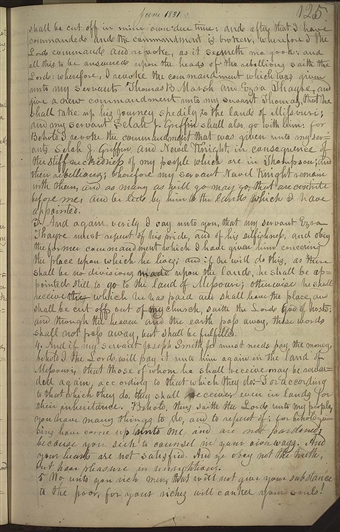 June 1831
125
shall be cut off in mine own due time: and after that I have
commanded and the commandment is broken, wherefore I the
Lord commands and revoke, as it seemeth me good: and
all this to be answered upon the heads of the rebellious saith the
Lord: wherefore, I revoke the commandment which was given
unto my Servant Thomas B. Marsh and Ezra Thayre, and
give a new commandment unto my Servant Thomas, that he
shall take up his journey speedily to the land of Missouri;
and my servant Selah J. Griffin shall also go with him: for
Behold I revoke the commandment that was given unto my ser-
vants Selah J. Griffin and Newel Knight, in consequence of
the stiffneckedness of my people which are in Thompson; and
their rebellions; wherefore my servant Newel Knight remain
with them, and as many as will go may go, that are contrite
before me; and be led by him to the land which I have
appointed.
3. And again verily I say unto you, that my servant Ezra
Thayre must repent of his pride, and of his selfishness, and obey
the former commandment which I have given him concerning
the place upon which he lives; and if he will do this, as there
shall be no divisions made upon the land, he shall be ap-
pointed still to go to the land of Missouri; otherwise he shall
receive the which he has paid and shall leave the place, and
shall be cut off out of my church, saith the Lord God of hosts:
and though the heaven and the earth pass away, these words
shall not pass away, but shall be fulfilled.
4. And if my servant Joseph Smith, jr. must needs pay the money,
behold I the Lord will pay it unto him again in the land of
Missouri, that those of whom he shall receive may be rewar-
ded again, according to that which they do: For according
to that which they do, they shall receive; even in lands for
their inheritance. Behold, thus saith the Lord unto my people,
you have many things to do, and to repent of: for behold your
sins have come up unto me and are not pardoned,
because you seek to counsel in your own ways. And
your hearts are not satisfied. And ye obey not the truth,
but have pleasure in unrighteous.
5. Wo unto you rich men, that will not give your substance
to the poor, for your riches will canker your souls!